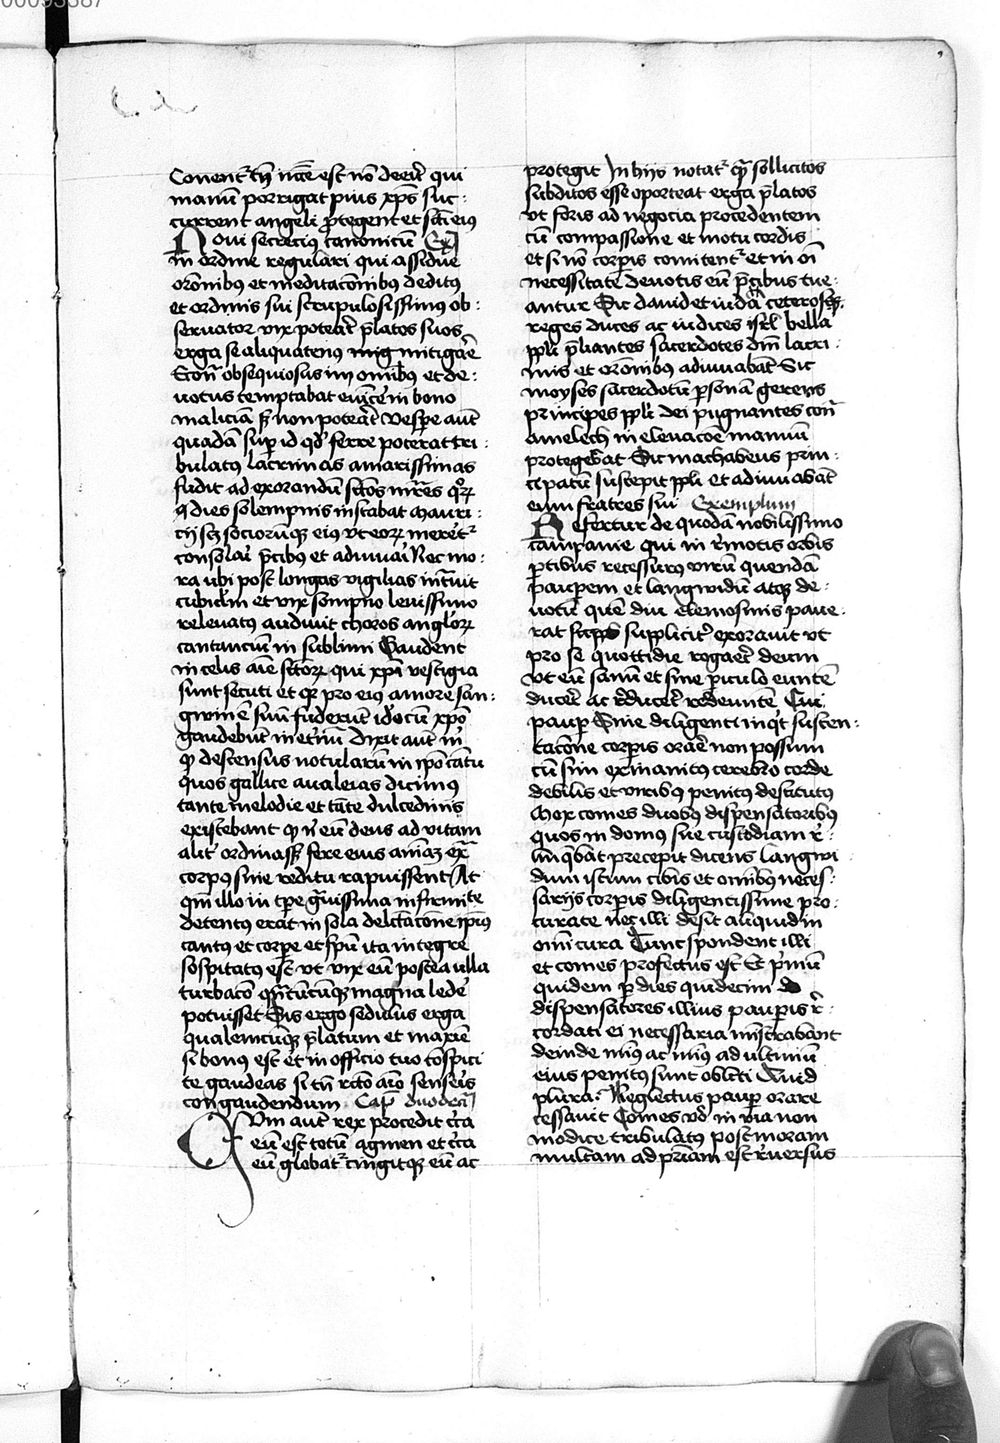 00093387
Conent᷑ tn̄ ncc̄e est nō deerit qui
manū porrigat pius xp̄s suc-
current angeli ꝓtegent et sct̄i eius
Noui secreciꝰ canonicū Exl̄
in ordine regulari qui assidue
orōnibus et meditacōnibus deditus
et ordinis sui scrupulosissimus ob-
seruator vix poterat p̄latos suos
erga se aliquatenus mitigare
obsequiosus in omībus et de-
uotus temptabat euincere in bono
maliciā sꝫ non poterat Vespere aut̄
quadā super id qd̄ ferre poterat tri-
bulatus lacrimas amarissimas
fudit ad exorandū sct̄os mr̄es quoꝝ
dies solempnis instabat mauri-
cij scꝫ sociorūqꝫ eiꝰ vt eoꝝ meret᷑
consolari p̄cibus et adiuuari Nec mo-
ra ubi post longas vigilias intrauit
cubiclm̄ et vix sompno leuissimo
releuatus audiuit choros angloꝝ
cantancium in sublimi Gaudent
in celis aīe sct̄oꝝ qui xp̄i vestigia
sunt secuti et qꝛ pro eius amore san-
gwinē suū fuderūt ideo cū xp̄o
gaudebūt in et̄nū Dixit aut̄ m̄
qꝫ descensus notularum in ip̄o cātu
quos gallice aualeias dicimus
tante melodie et tāte dulcedinis
existebant qꝫ nͥ eū deus ad vitam
alit᷑ ordinasset fere eius aīaꝫ ext᷑
corpus sine reditu rapuissent At
qm̄ illo in tp̄e g̊uissima infirmite
detentus erat in sola delectacōne ip̄ius
cantus et corpe et spū ita integre
sospitatus est vt vix eū postea ulla
turbacō qn̄tūcūqꝫ magna ledere
potuisset Sis ergo sedulus erga
qualemcūqꝫ p̄latum et maxīe
si bonus est et in officio tuo cōspici
te gaudeas si tn̄ rōto aīo senseris
congaudendum Cap̄ duodeciͫ
Cum aut̄ rex procedit circa
eū est totū agmen et circa
eū globat᷑ cingitqꝫ eū ac
protegit In hijs notat᷑ qͣ sollicitos
subditos esse oporteat erga p̄latos
vt foris ad negocia procedentem
cū compassione et motu cordis
et si nō corpis comitent᷑ et in oī
necessitate deuotis eū p̄cibus tue-
antur Sic dauid et iuda ceterosqꝫ
reges duces ac iudices isrl̄ bella
ppl̄i p̄liantes sacerdotes dn̄i lacri-
mis et orōnibus adiuuabāt Sic
moyses sacerdotū ꝑsonā gerens
principes ppl̄i dei pugnantes con̄
amelech in eleuacōe manuū
protegebat Sic machabeus prin-
cipatū suscepit ppl̄i et adiuuabāt
eum fratres sui Exemplum
Refertur de quodā nobilissimo
campanie qui in r̄motis orbis
ꝑtibus recessurus virū quendā
pauꝑem et langwidū atqꝫ de-
uotū quē diu elemosinis paue-
rat suppliciter exorauit vt
pro se quottidie rogaret deum
vt eū sanū et sine ꝑiculo euntē
duceret ac reduceret redeuntē Cui
pauꝑ Sine diligenti inqͥt susten-
tacōne corꝑis orare non possum
cū sim exinanitus cerebro corde
debilis et viribus penitus destitutus
Mox comes duobus dispensatoribus
quos in domus sue custodiam r̄-
linq̄bat precepit dicens Langwi-
dum istum cibis et omībus neces-
sarijs corꝑis diligentissime pro-
curate nec illi desit aliquid in
omī cura Tunc spondent illi
et comes profectus est Et pͥmū
quidem ꝑ dies quindecim
dispensatores illius pauꝑis r̄-
cordati ei necessaria mīstrabant
deinde minꝰ ac minꝰ ad ultimū
eius penitus sunt obliti Quid
plura Neglectus pauꝑ orare
cessauit Comes vō in via non
modice tribulatus post moram
multam ad pr̄iam est r̄uersus